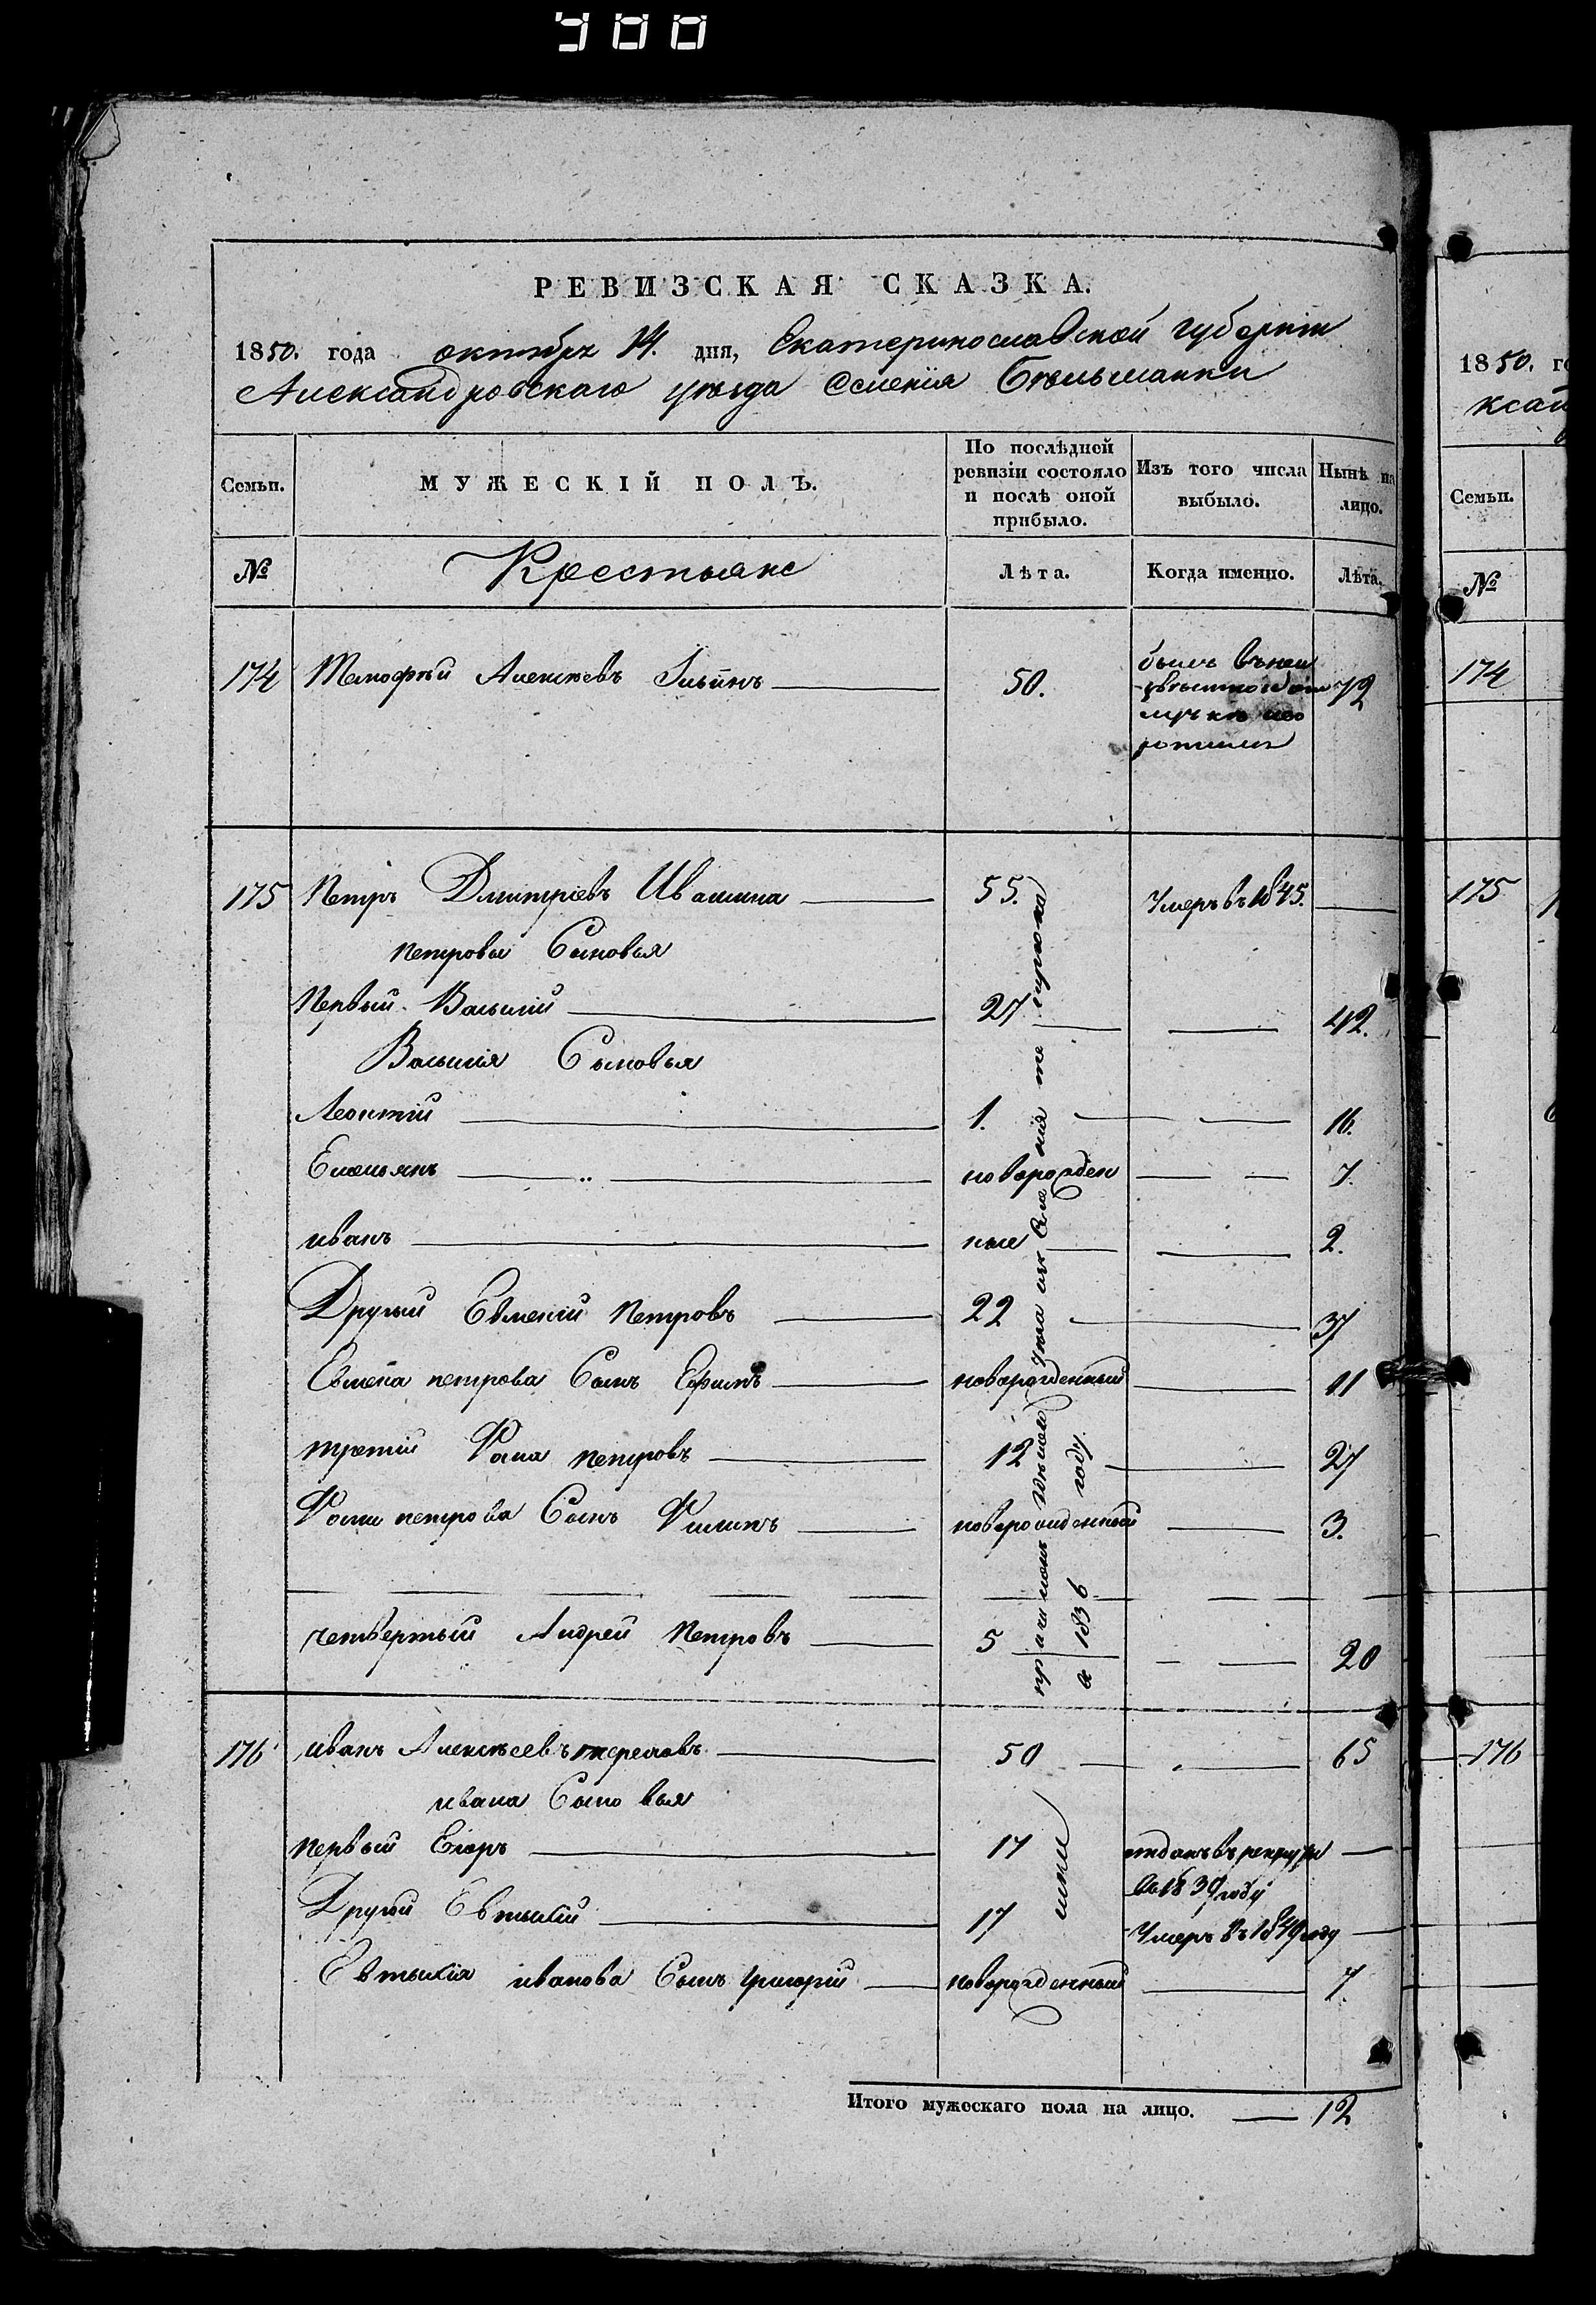 900
РЕВИЗСКАЯ СКАЗКА.
1850. года октября 14. дня, Екатеринославской губернии
Александровскаго уѣзда Селенія Бѣльманки
Семьи.
МУЖЕСКІЙ ПОЛЪ.
По послѣдней ревизіи состояло и послѣ оной прибыло.
Изъ того числа выбыло.
Нынѣ на лицо.
№
Крестьяне
Лѣта.
Когда именно.
Лѣта.
174 Тимофѣй Алексѣевъ Ильинъ 50. былъ въ неизвѣстной отлучкѣ 72
175 Петръ Дмитріевъ Ивашина 55. Умеръ въ 1845.
Петровы Сыновья
Первый Василій 27 42.
Василія Сыновья
Леонтій 1. 16.
Емельянъ новорожден 7.
иванъ ные 2.
Другий Евменій Петровъ 22 37
Евмена петрова Сынъ Ефимъ новорожденный 11
третій Фома петровъ 12 27
Фомы петрова Сынъ Филипъ новорожденный 3.
четвертый Андрей Петровъ 5 20
уѣзда изъ Селенія
въ 1836 году
176 иванъ Алексѣевъ 50 65
ивана Сыновья
первый Егоръ 17 отданъ въ рекруты
въ 1839 году
Другий Евтыхій 17 Умеръ въ 1849 году
Евтыхія иванова Сынъ Григорій новорожденный 7.
Итого мужескаго пола на лицо. 12
1850. го
ксан
Семьи.
№
174
175
176